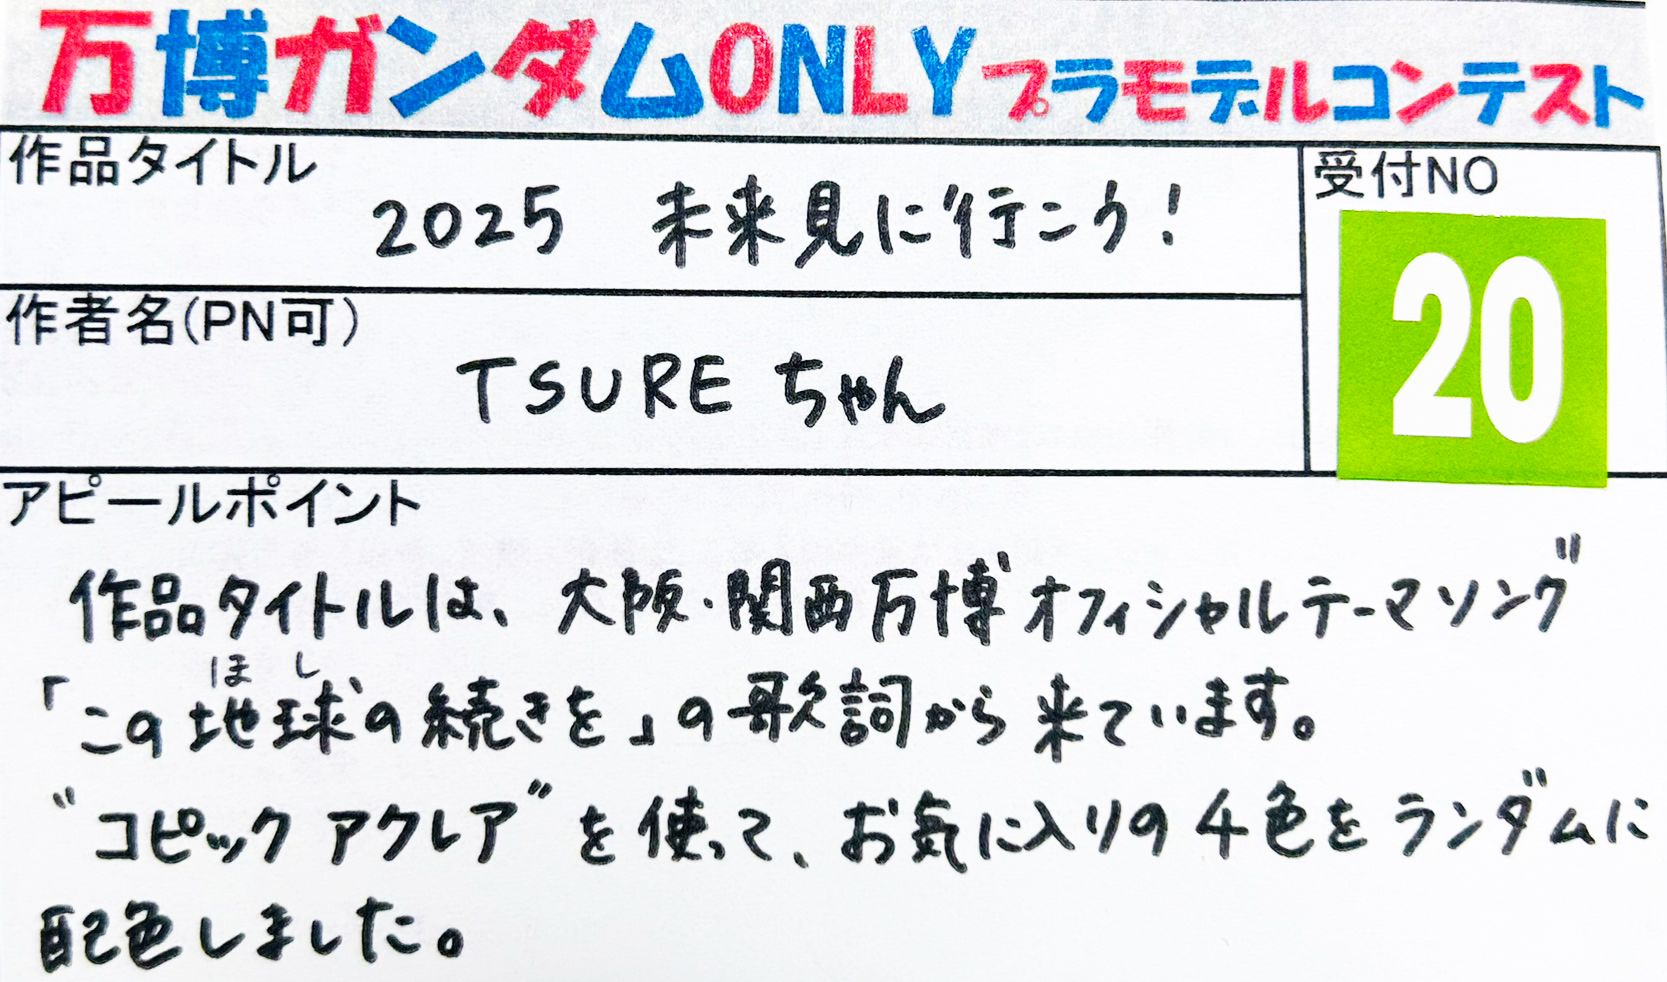 万博ガンダムONLYプラモデルコンテスト
作品タイトル
2025 未来見に行こう!
受付NO
20
作者名(PN可)
TSURE ちゃん
アピールポイント
作品タイトルは、大阪・関西万博オフィシャルテーマソング
ほし
「この地球の続きを」の歌詞から来ています。
"コピックアクレア"を使って、お気に入りの4色をランダムに
配色しました。